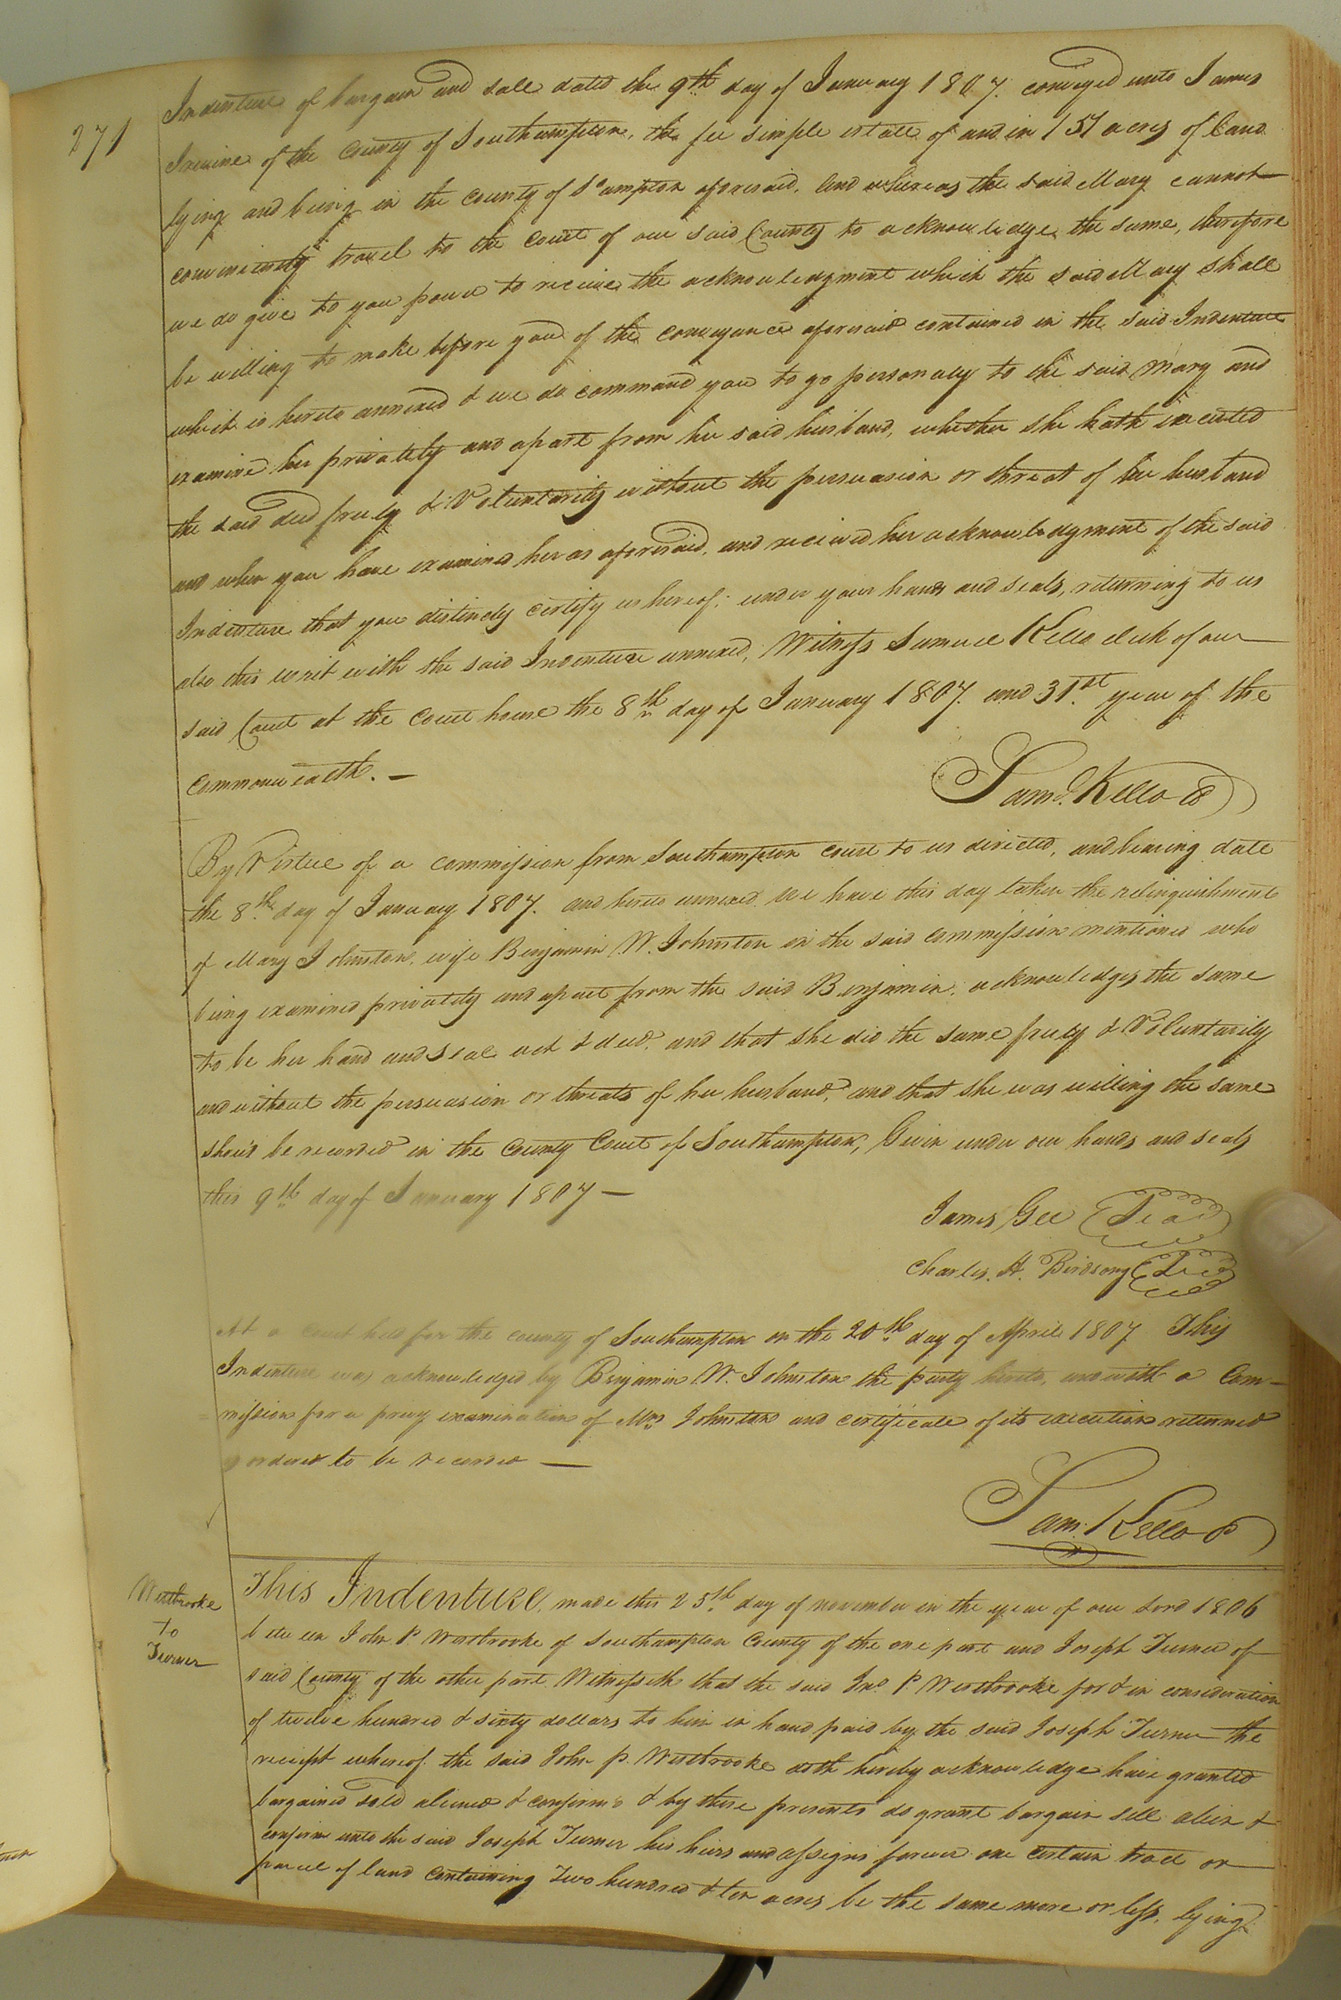 271
Indenture of bargain and sale dated the 9th day of January 1807. conveyed unto James
of the County of Southampton, the fee simple estate of and in 157 acres of land
lying and being in the county of So ampton aforesaid, and whereas the said Mary cannot
conveniently travel to the court of our said County to acknowledge the same, therefore
we do give to you power to receive the acknowledgment which the said Mary shall
be willing to make before you of the conveyance aforesaid contained in the said Indenture
which is hereto annexed & we do command you to go personaly to the said Mary and
examine her privately and apart from her said husband, whether she hath executed
the said deed freely & Voluntarily without the persuasion or threat of her husband
and when you have examined her as aforesaid, and received her acknowledgment of the said
Indenture that you distincly certify us hereof; under your hands and seals, returning to us
also this writ with the said Indenture annexed, Witness Samuel Kello clerk of our
said Court at the court house the 8th day of January 1807. and 31st. year of the
commonwealth. —
Saml. Kello
By Virtue of a commission from Southampton court to us directed, and bearing date
the 8th. day of January 1807. and hereto annexed we have this day taken the relinquishment
of Mary Johnston, wife Benjamin W. Johnston in the said commission mentioned who
being examined privately and apart from the said Benjamin, acknowledges the same
to be her hand and seal act & deed, and that she did the same freely & Voluntarily
and without the persuasion or threats of her husband, and that she was willing the same
should be recorded in the County Court of Southampton, Given under our hands and seals
this 9th day of January 1807 —
James Gee Seal
Charles. H. Birdsong Seal
At a court held for the county of Southampton on the 20th day of April 1807 This
Indenture was acknowledged by Benjamin W. Johnston the party hereto, and with a Com-
mission for a privy examination of Mrs Johnston and certificate of its execution returned
is ordered to be recorded —
Sam. Kello
Westbrooke
to
Turner
This Indenture, made this 25th day of november in the year of our Lord 1806
between John P Westbrooke of Southampton County of the one part and Joseph Turner of
said County of the other part Witnesseth that the said Jno. P Westbrooke for & in consideration
of twelve hundred & sixty dollars to him in hand paid by the said Joseph Turner the
receipt whereof the said John P. Westbrooke doth hereby acknowledge have granted
bargained sold aliened & confirmd & by these presents do grant bargain sell alien &
confirm unto the said Joseph Turner his heirs and assigns forever one certain tract or
parcel of land containing Two hundred & ten acres be the same more or less, lying